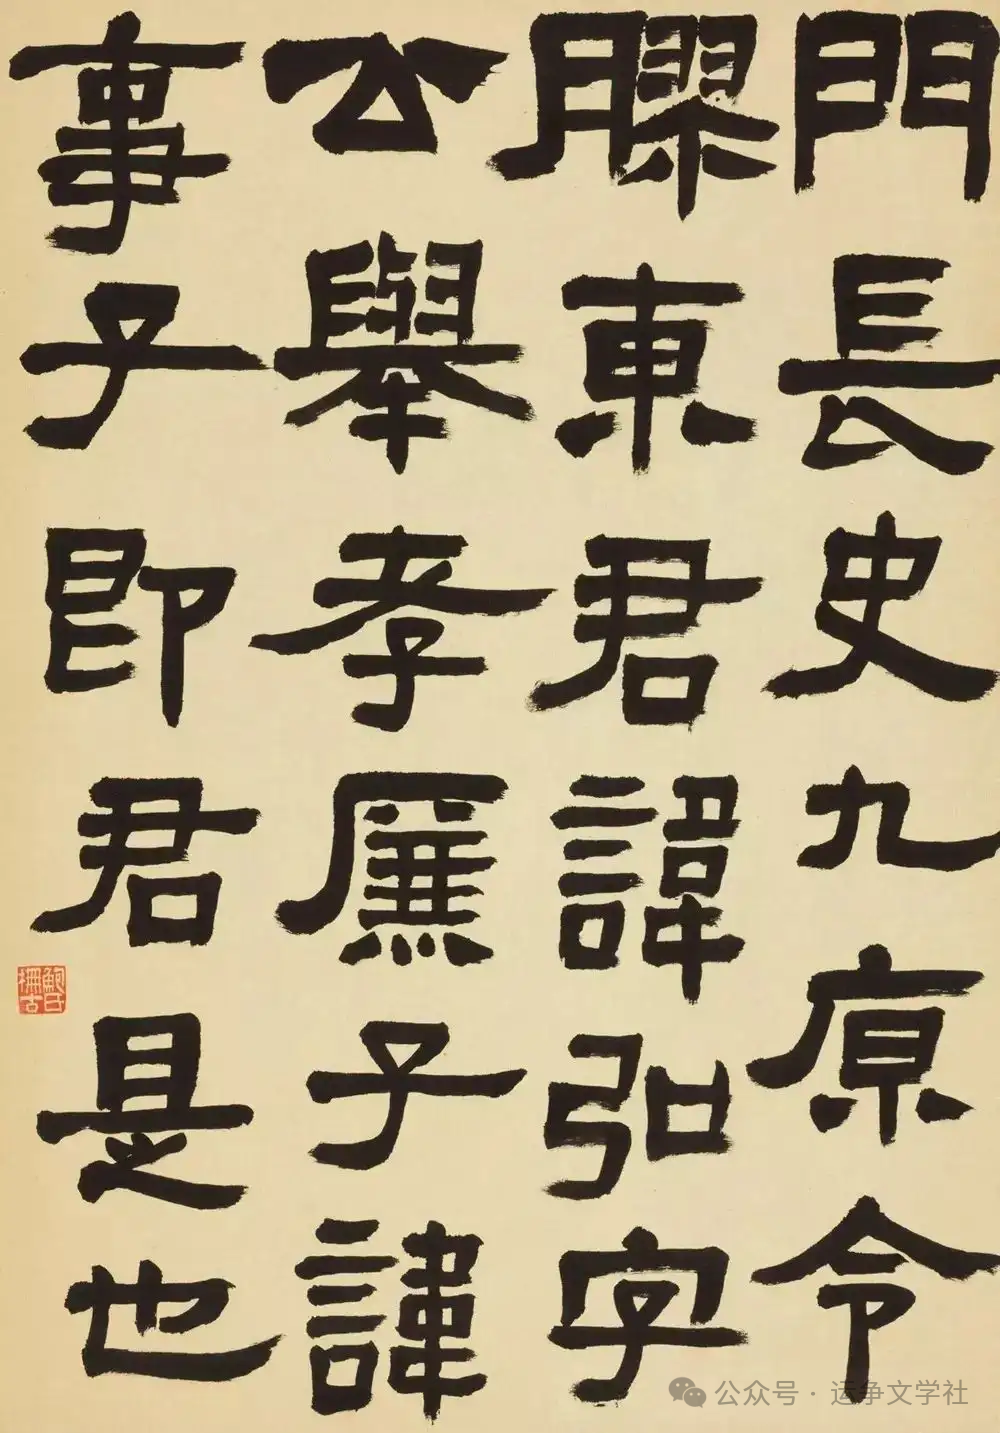 門長史九原令
膠東君諱弘字
公舉孝廉子諱
事子即君是也
鮑氏橅古
公众号 · 运争文学社